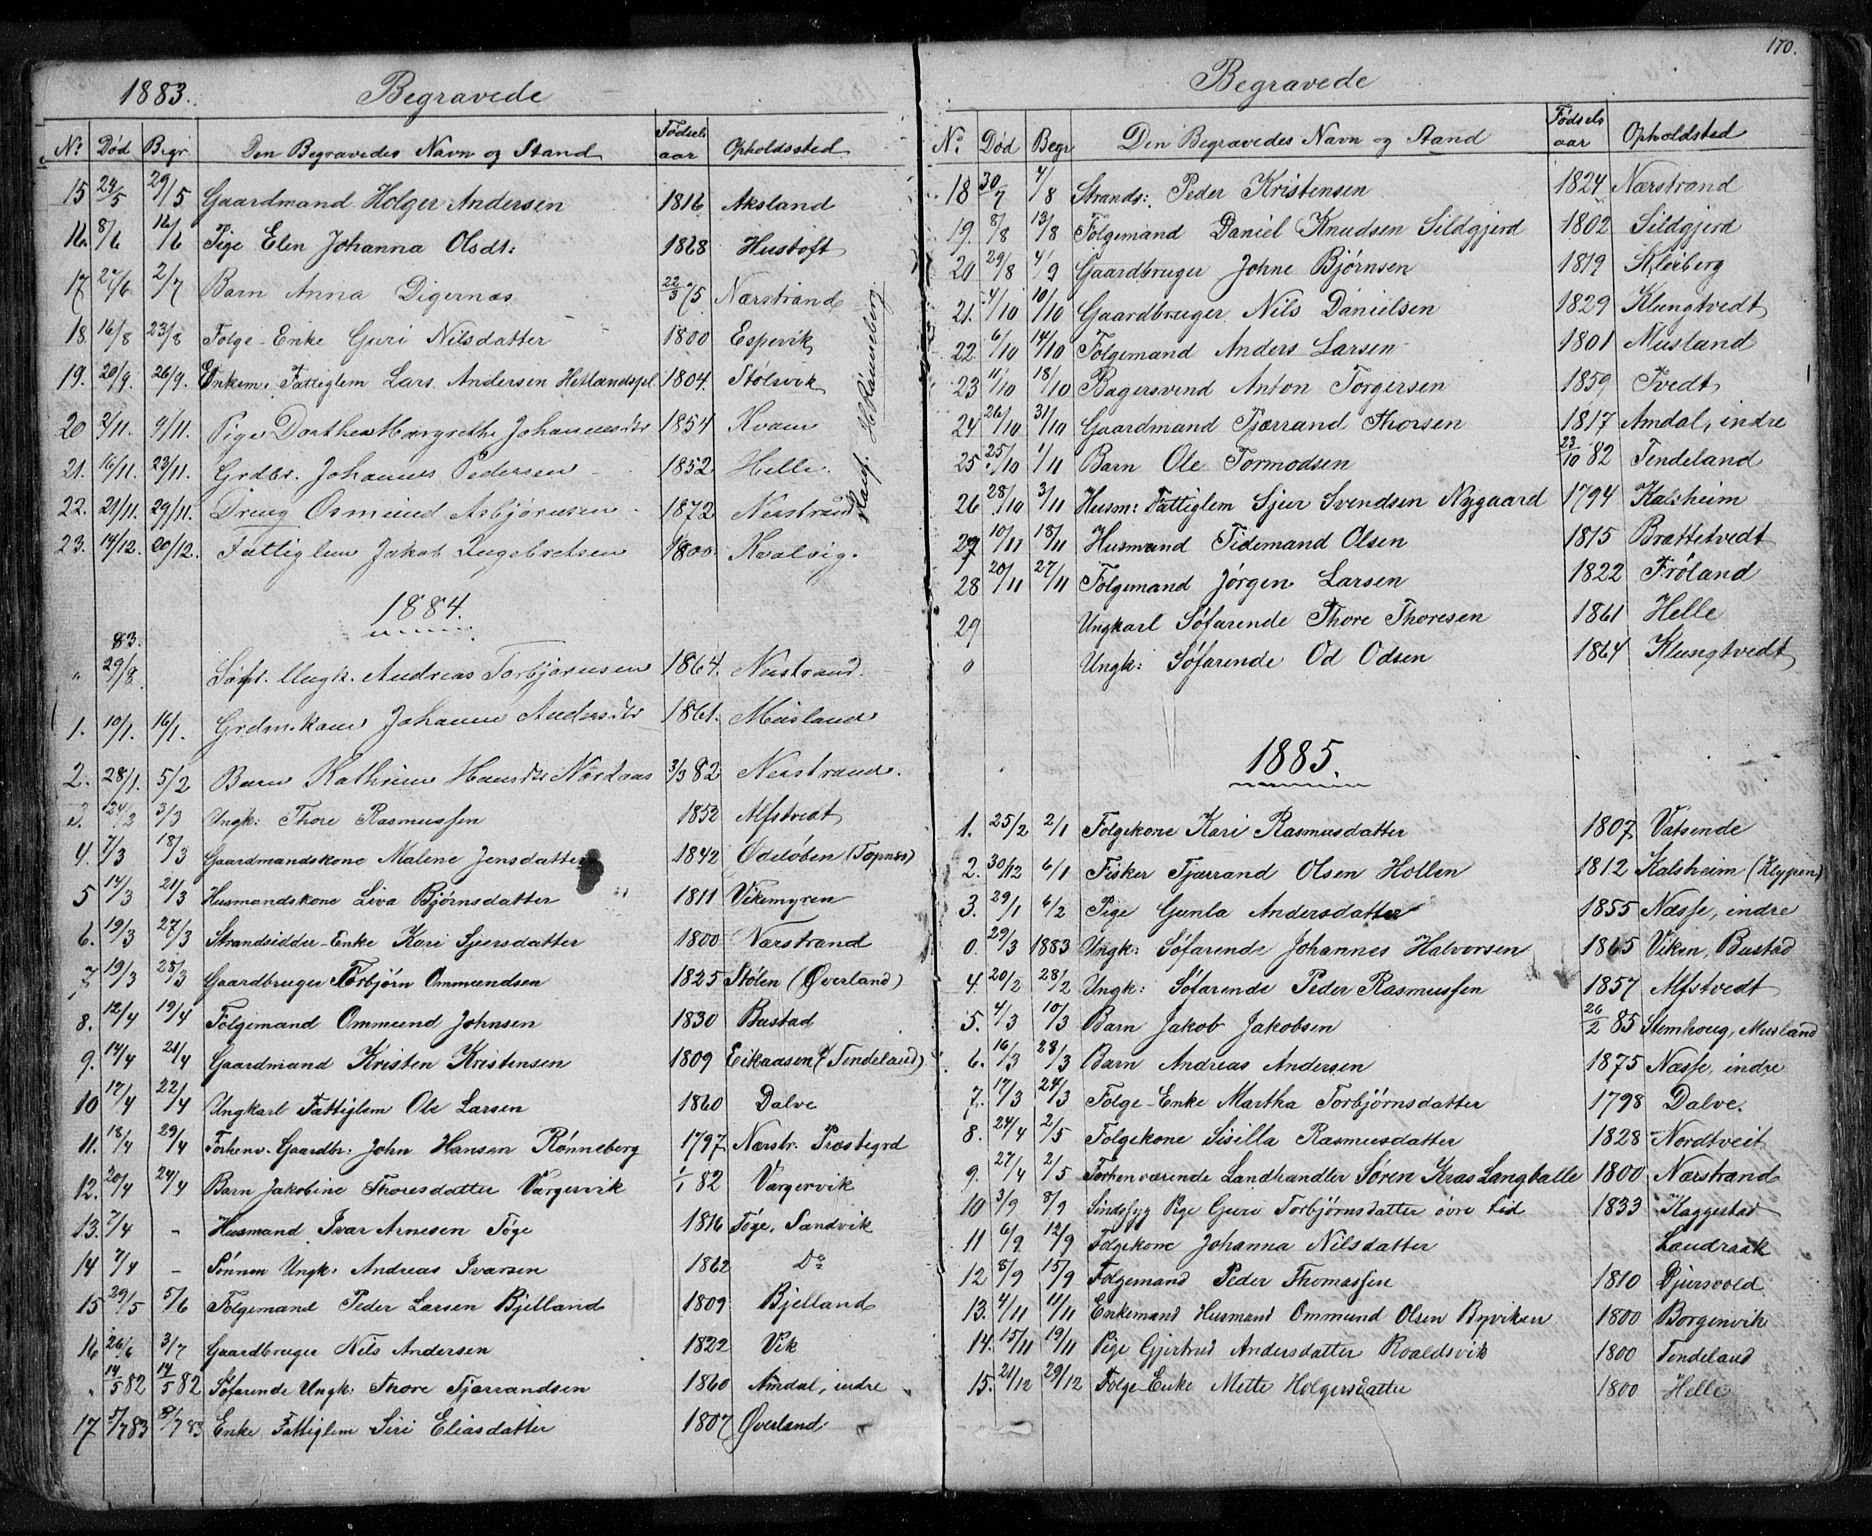 1883. Begravede
No Død Begr. Den Begravedes Navn og Stand Fødselsaar Opholdssted
15 24/5 29/5 Gaardmand Holger Andersen 1816 Aksland
16. 8/6 16/6 Pige Elen Johanna Olsdt: 1868 Hustoft
17 27/6 2/7 Barn Anna Digernæs 22/3 75 Nærstrand
18. 16/8 23/8 Folge-Enke Guri Nilsdatter 1800 Espevik
19. 20/9. 26/9. Enkem: Fattiglem Lars Andersen Hetlandspl. 1804. Stølsvik
20 2/11. 9/11. Pige Dorthea Margrethe Johannesdtr 1854 Kvam
21. 16/11. 23/11. Grdbr. Johannes Pedersen 1852 Helle.
22. 21/11. 29/11. Dreng Osmund Asbjørnsen 1872 Nerstrand
23. 14/12. 20/12. Fattiglem Jakob Ingebretsen 1800. Kvalvig.
Hans H Rønneberg
1884.
83.
" 29/8. Søf. Ungk. Andreas Torbjørnsen 1864. Nerstrand.
1. 10/1. 16/1. Grdm.kone Johanne Andersdtr 1861. Musland
2. 28/1. 5/2 Barn Kathrine Hansdtr Nordaas 3/3 82 Nerstrand.
3. 24/2 3/3 Ungk: Thore Rasmussen 1852 Alfstvedt
4. 7/3 18/3 Gaardmandskone Malene Jensdatter 1842 Ödeløben (Topnes)
5 14/3 21/3 Husmandskone Liva Bjørnsdatter 1811 Vikemyren
6. 19/3 27/3 Strandsidder-Enke Kari Sjursdatter 1800 Nærstrand
7 19/3 25/3 Gaardbruger Torbjørn Ommundsen 1825 Stølen (Øverland)
8. 12/4 19/4 Folgemand Ommund Johnsen 1830 Bustad
9. 14/4 21/4 Gaardmand Kristen Kristensen 1809 Eikaasen (Tendeland)
10 17/4 22/4 Ungkarl Fattiglem Ole Larsen 1860 Dalve
11. 18/4 29/4 Forhenv. Gaardbr: John Hansen Rønneberg 1797 Nærstr. Præstegrd
12. 20/4 24/4 Barn Jakobine Thoresdatter Vargervik 1/1 82 Vargervik
13. 7/4 - Husmand Ivar Arnesen Tøge 1816 Tøge, Sandvik
14 7/4 - Sønnen Ungk: Andreas Ivarsen 1862 Do
15 29/5 5/6 Folgemand Peder Larsen Bjelland 1809 Bjelland
16 26/6 3/7 Gaardbruger Nils Andersen 1822 Vik
. 14/5 82 14/5 82 Søfarende Ungk: Thore Tjærrandsen 1860 Amdal, indre
17 5/7 83 8/7 83 Enke Fattiglem Siri Eliasdatter 1807 Øverland
170.
Begravede
No. Død Begr Den Begravedes Navn og Stand Fødselsaar Opholdsted
18 30/7 4/8 Strands: Peder Kristensen 1824 Nærstrand
19. 8/8 13/8 Folgemand Daniel Knudsen Sildgjerd 1802 Sildgjerd
20 29/8 4/9 Gaardbruger Johne Bjørnsen 1819 Kleiberg
21. 4/10 10/10 Gaardbruger Nils Danielsen 1829 Klungtvedt
22 6/10 14/10 Folgemand Anders Larsen 1801 Musland
23 11/10 18/10 Bagersvend Anton Torgersen 1859 Tvedt
24 26/10 31/10 Gaardmand Tjærrand Thorsen 1817 Amdal, indre
25 25/10 1/11 Barn Ole Tormodsen 23/10 82 Tendeland
26 28/10 3/11 Husm: Fattiglem Sjur Svendsen Nygaard 1794 Kalsheim
27 10/11 18/11 Husmand Tidemand Olsen 1815 Brættetvedt
28 20/11 27/11 Folgemand Jörgen Larsen 1822 Fröland
29 Ungkarl Söfarende Thore Thoresen 1861 Helle
0 Ungk: Söfarende Od Odsen 1864 Klungtvedt
1885.
1. 25/2 2/1 Folgekone Kari Rasmusdatter 1807 Vatsende
2. 30/12 6/1 Fisker Tjærrand Olsen Hollen 1812 Kalsheim (Klypen)
3. 29/1 6/2 Pige Gunla Andersdatter 1855 Næsse, indre
0. 29/3 1883 Ungk: Söfarende Johannes Halvorsen 1865 Viken, Bustad
4. 20/2 28/2 Ungk: Söfarende Peder Rasmussen 1857 Alfstvedt
5. 4/3 10/3 Barn Jakob Jakobsen 26/2 85 Stemhoug, Musland
6. 16/3 23/3 Barn Andreas Andersen 1875 Næsse, indre
7. 17/3 24/3 Folge-Enke Martha Torbjørnsdatter 1798 Dalve.
8. 24/4 2/5 Folgekone Sisilla Rasmusdatter 1828 Nordtveit
9. 27/4 2/5 Forhenværende Landhandler Søren Kras Langballe 1800 Nærstrand
10 3/9 8/9 Sindssyg Pige Guri Torbjørnsdatter övre Lid 1833 Haggestad
11 6/9 12/9 Folgekone Johanna Nilsdatter Landraak
12 8/9 15/9 Folgemand Peder Thomassen 1810 Djursvold
13. 4/11 11/11 Enkemand Husmand Ommund Olsen Byviken 1800 Borgenvik
14. 15/11 19/11 Pige Gjertrud Andersdatter Roaldsvik 1800 Tendeland
15. 21/12 29/12 Folge-Enke Mette Holgersdatter 1800 Helle